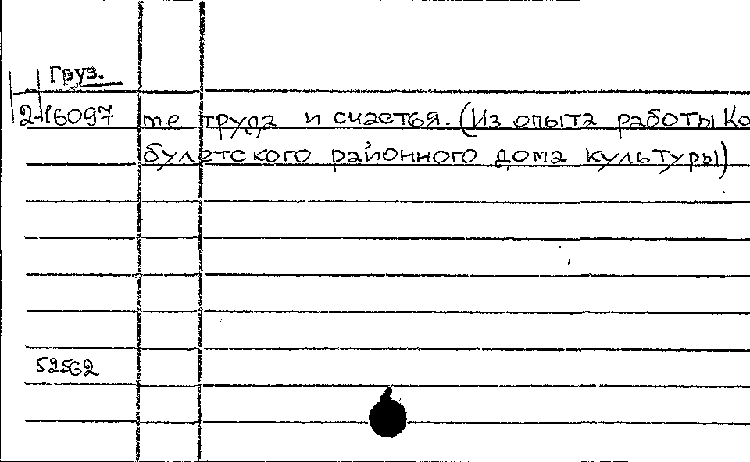 Груз.
2-16097 те труда и счастья. (Из опыта работы Ко
булетского районного дома культуры)
52562